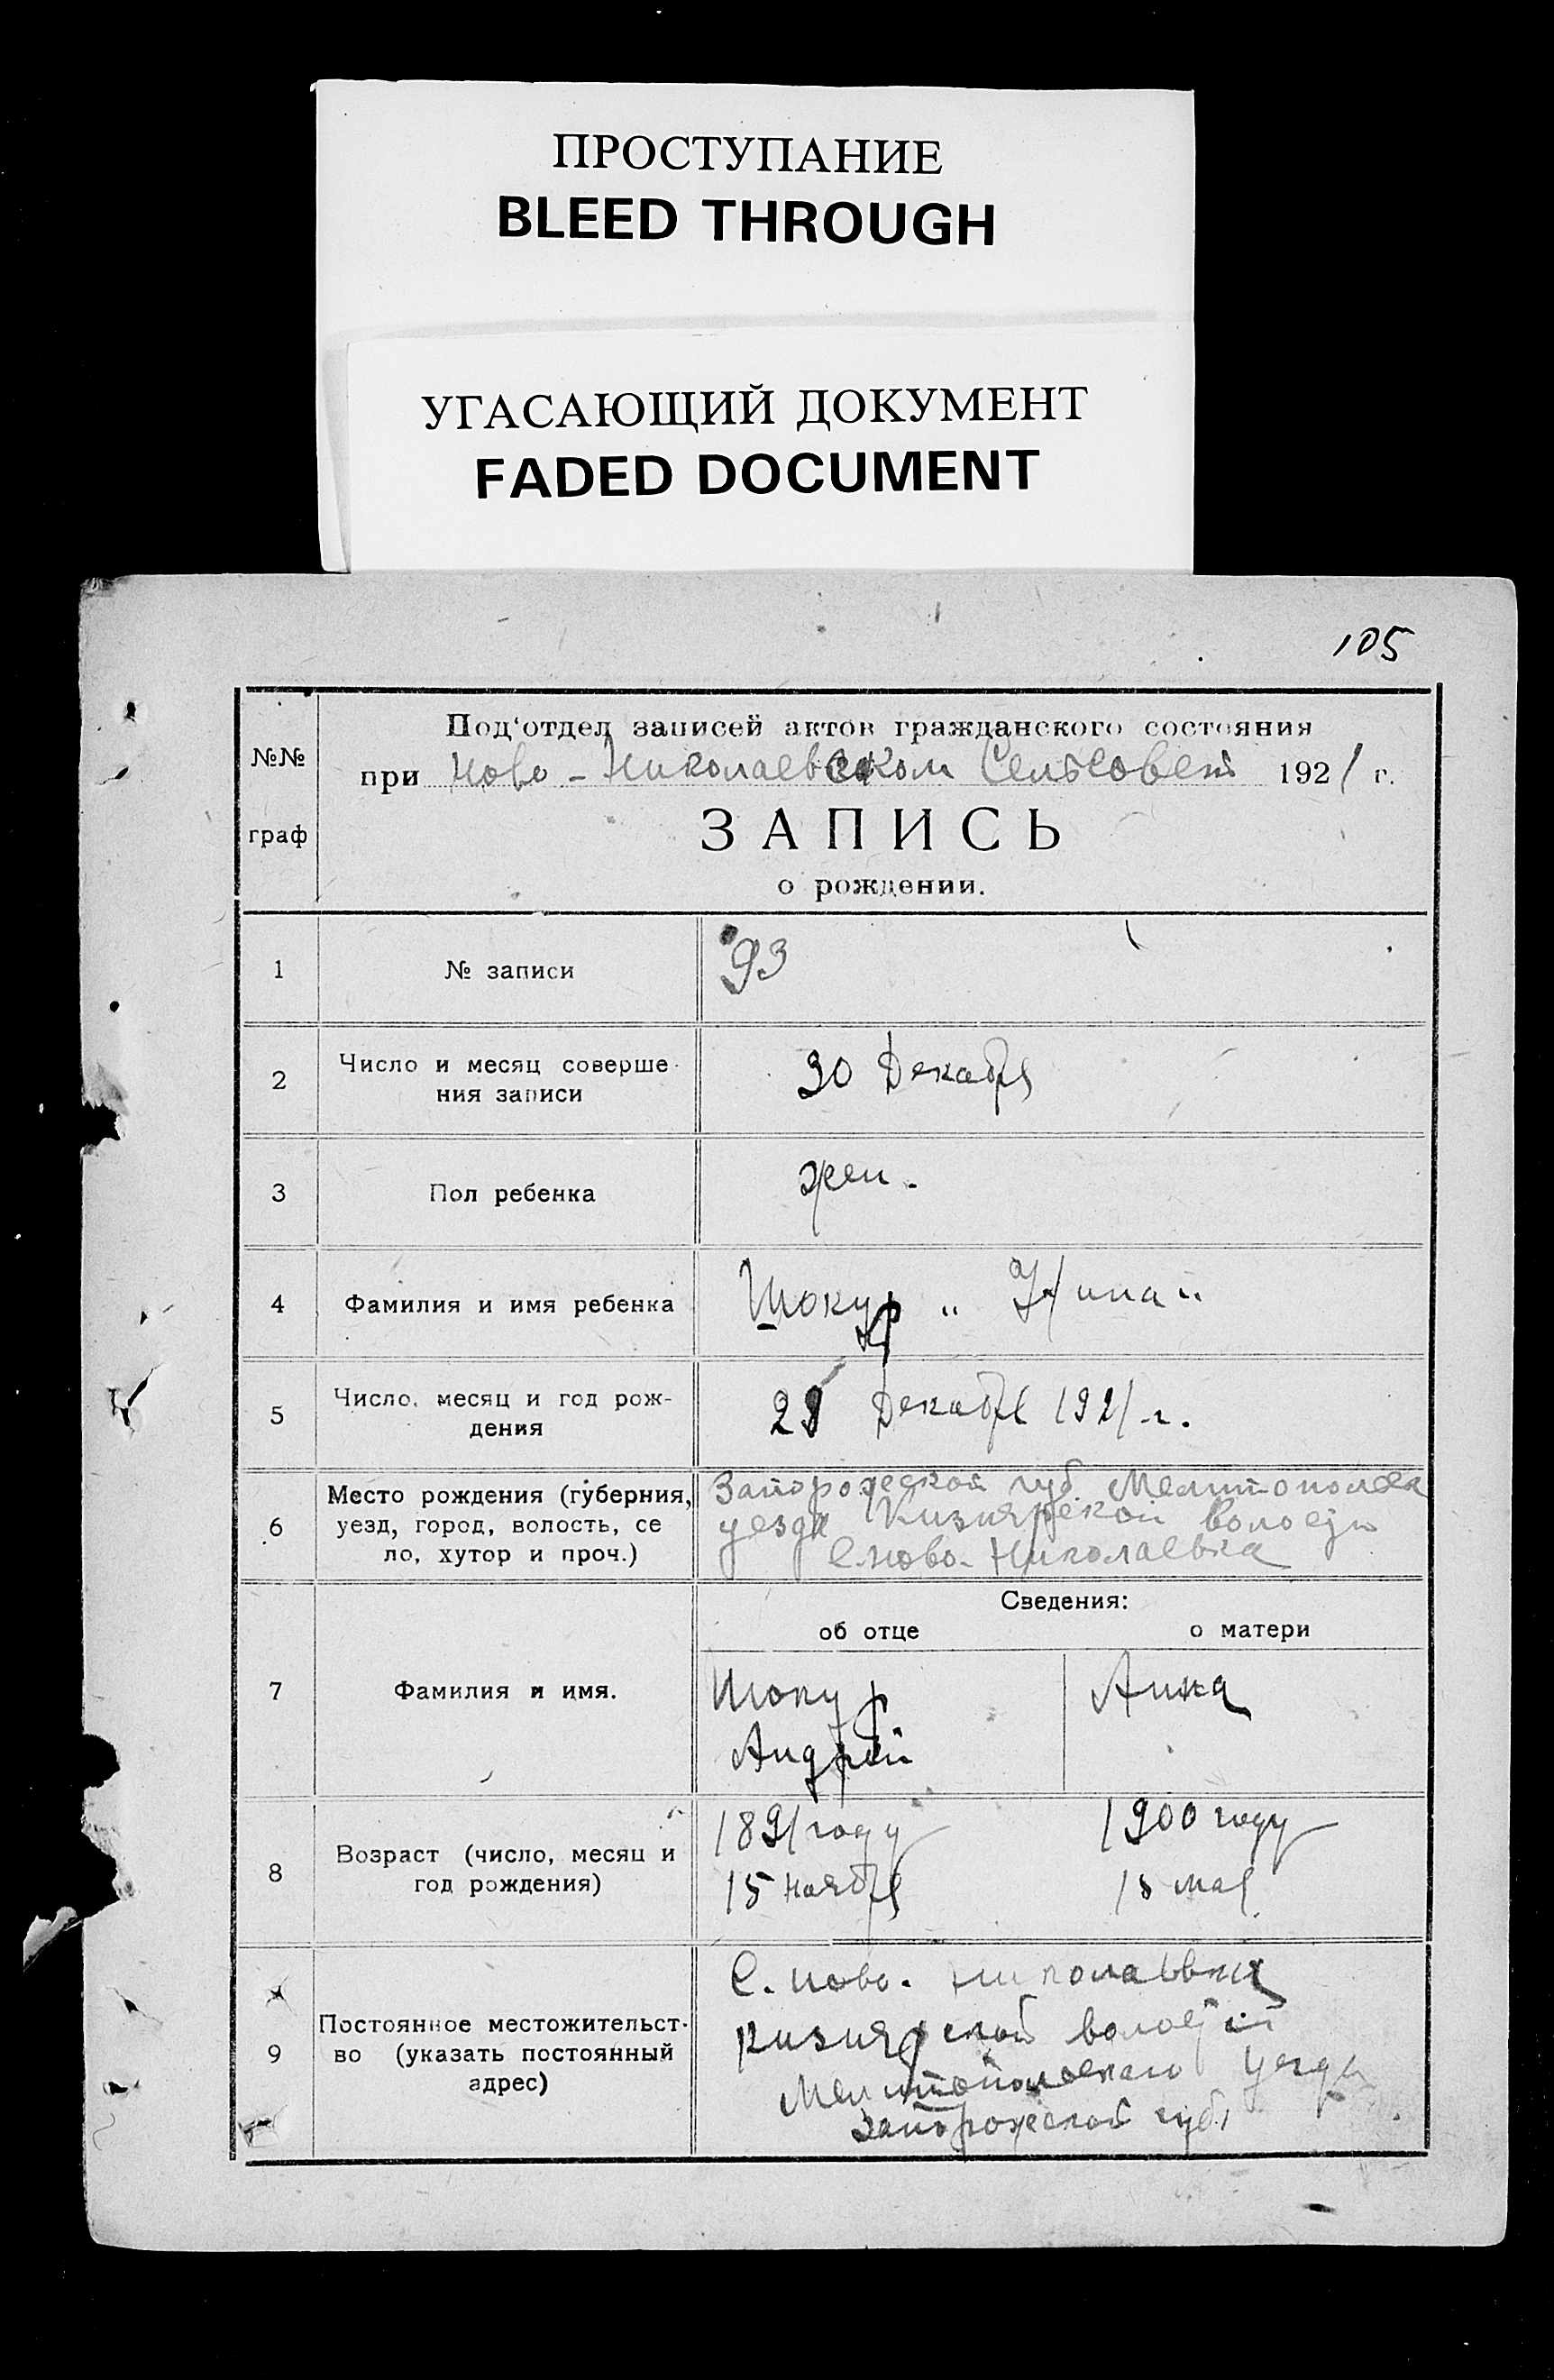 ПРОСТУПАНИЕ
BLEED THROUGH
УГАСАЮЩИЙ ДОКУМЕНТ
FADED DOCUMENT
105
№№
граф
Под‘отдел записей актов гражданского состояния
при Ново - Николаевском Сельсовет 1921 г.
ЗАПИСЬ
о рождении.
1
№ записи
93
2
Число и месяц соверше-
ния записи
30 Декабря
3
Пол ребенка
жен.
4
Фамилия и имя ребенка
Шокур „ Нина "
5
Число, месяц и год рож-
дения
Декабря 1921 г.
6
Место рождения (губерния,
уезд, город, волость, се
ло, хутор и проч.)
Запорожской губ. Мелитопольск
уезда Кизиярской волости
с. Ново-Николаевка
Сведения:
об отце
о матери
7
Фамилия и имя.
Шокур
Андрей
Анна
8
Возраст (число, месяц и
год рождения)
1891 году
15 ноября
1900 году
мая
9
Постоянное местожительст-
во (указать постоянный
адрес)
С. Ново. Николаевка
Кизиярской волости
Мелитопольскаго уезда
Запорожской губ.